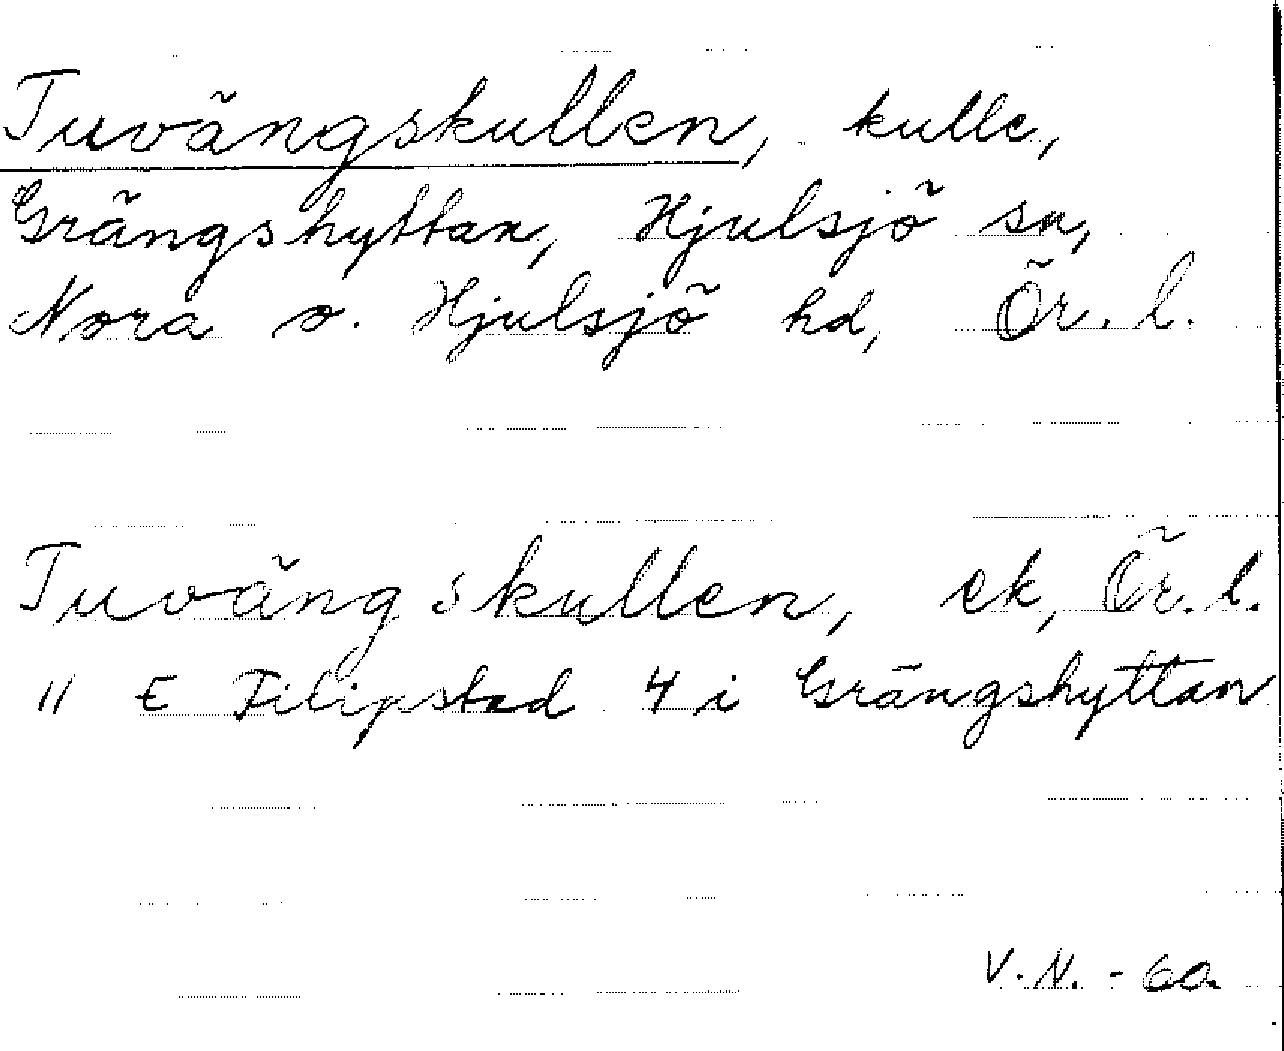 Tuvängskullen, kulle,
Grängshyttan, Hjulsjö sn,
Nora o. Hjulsjö hd, Ör. l.
Tuvängskullen, ek, Ör. l.
11 E Filipstad 4 i Grängshyttan
V. N. - 60.